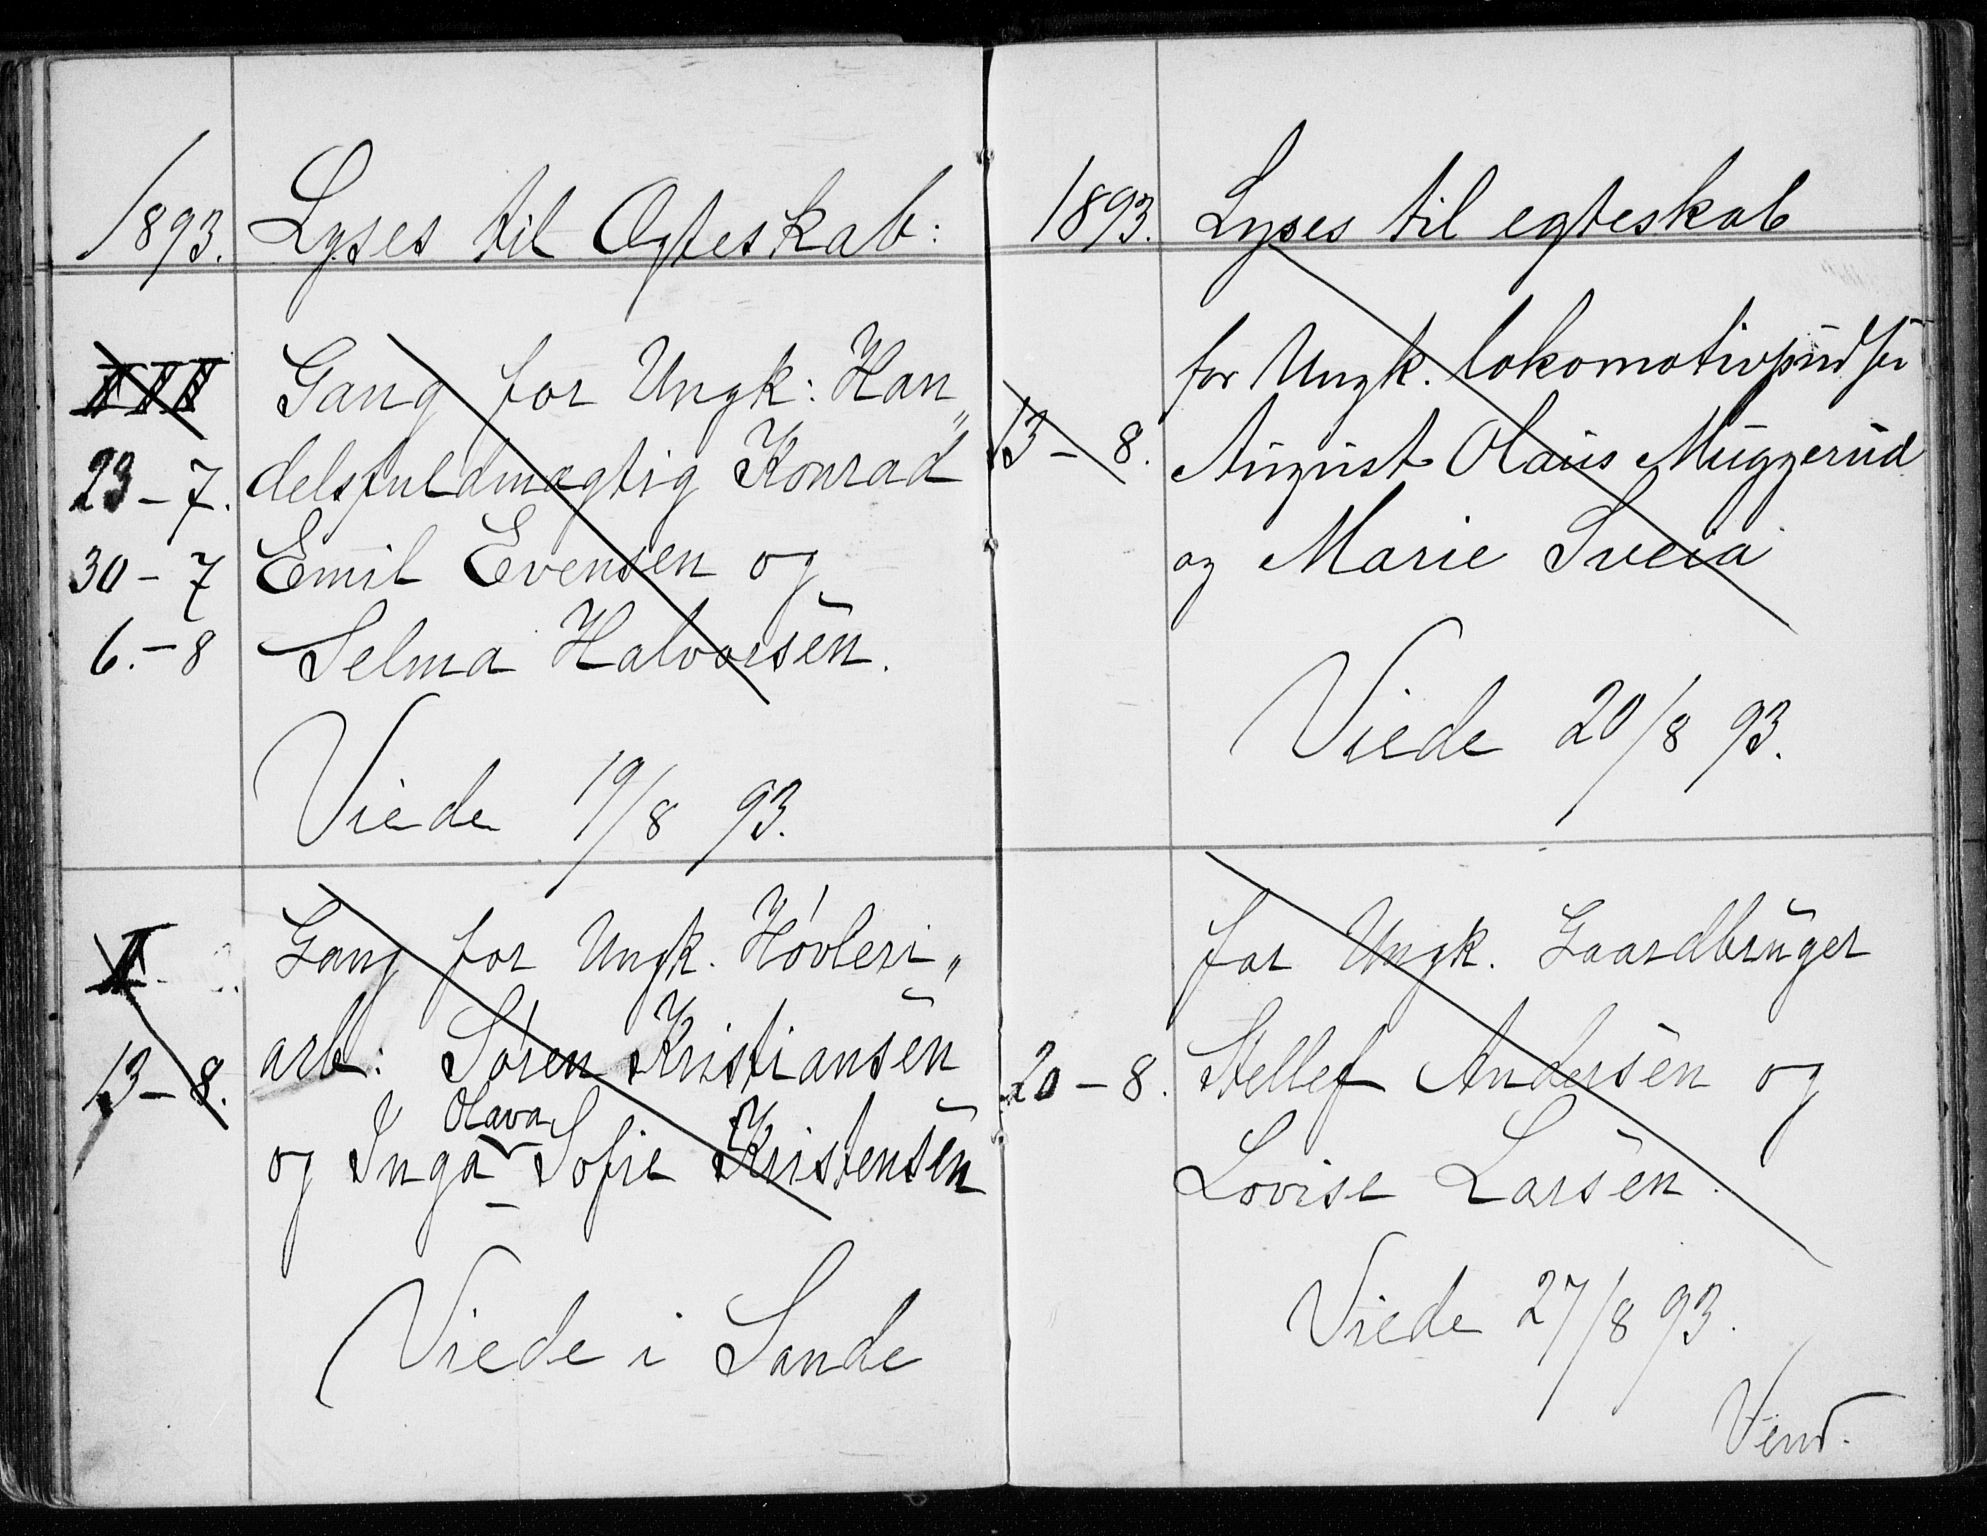 1893. Lyses til Ægteskab:
III Gang for Ungk: Han„
23-7. delsfuldmægtig Konrad
30-7 Emil Evensen og
6.-8 Selma Halvorsen.
Viede 19/8 93.
I Gang for Ungk. Høvleri„
arb: Søren Kristiansen
13-8. Olava
og Inga Sofie Kristensen
Viede i Sande
1893. Lyses til egteskab
for Ungk. lokomotivpudser
13-8. August Olaus Muggerud
og Marie Sveia
Viede 20/8 93.
for Ungk. Gaardbruger
20-8. Stellef Andersen og
Lovise Larsen.
Viede 27/8 93.
Vend.